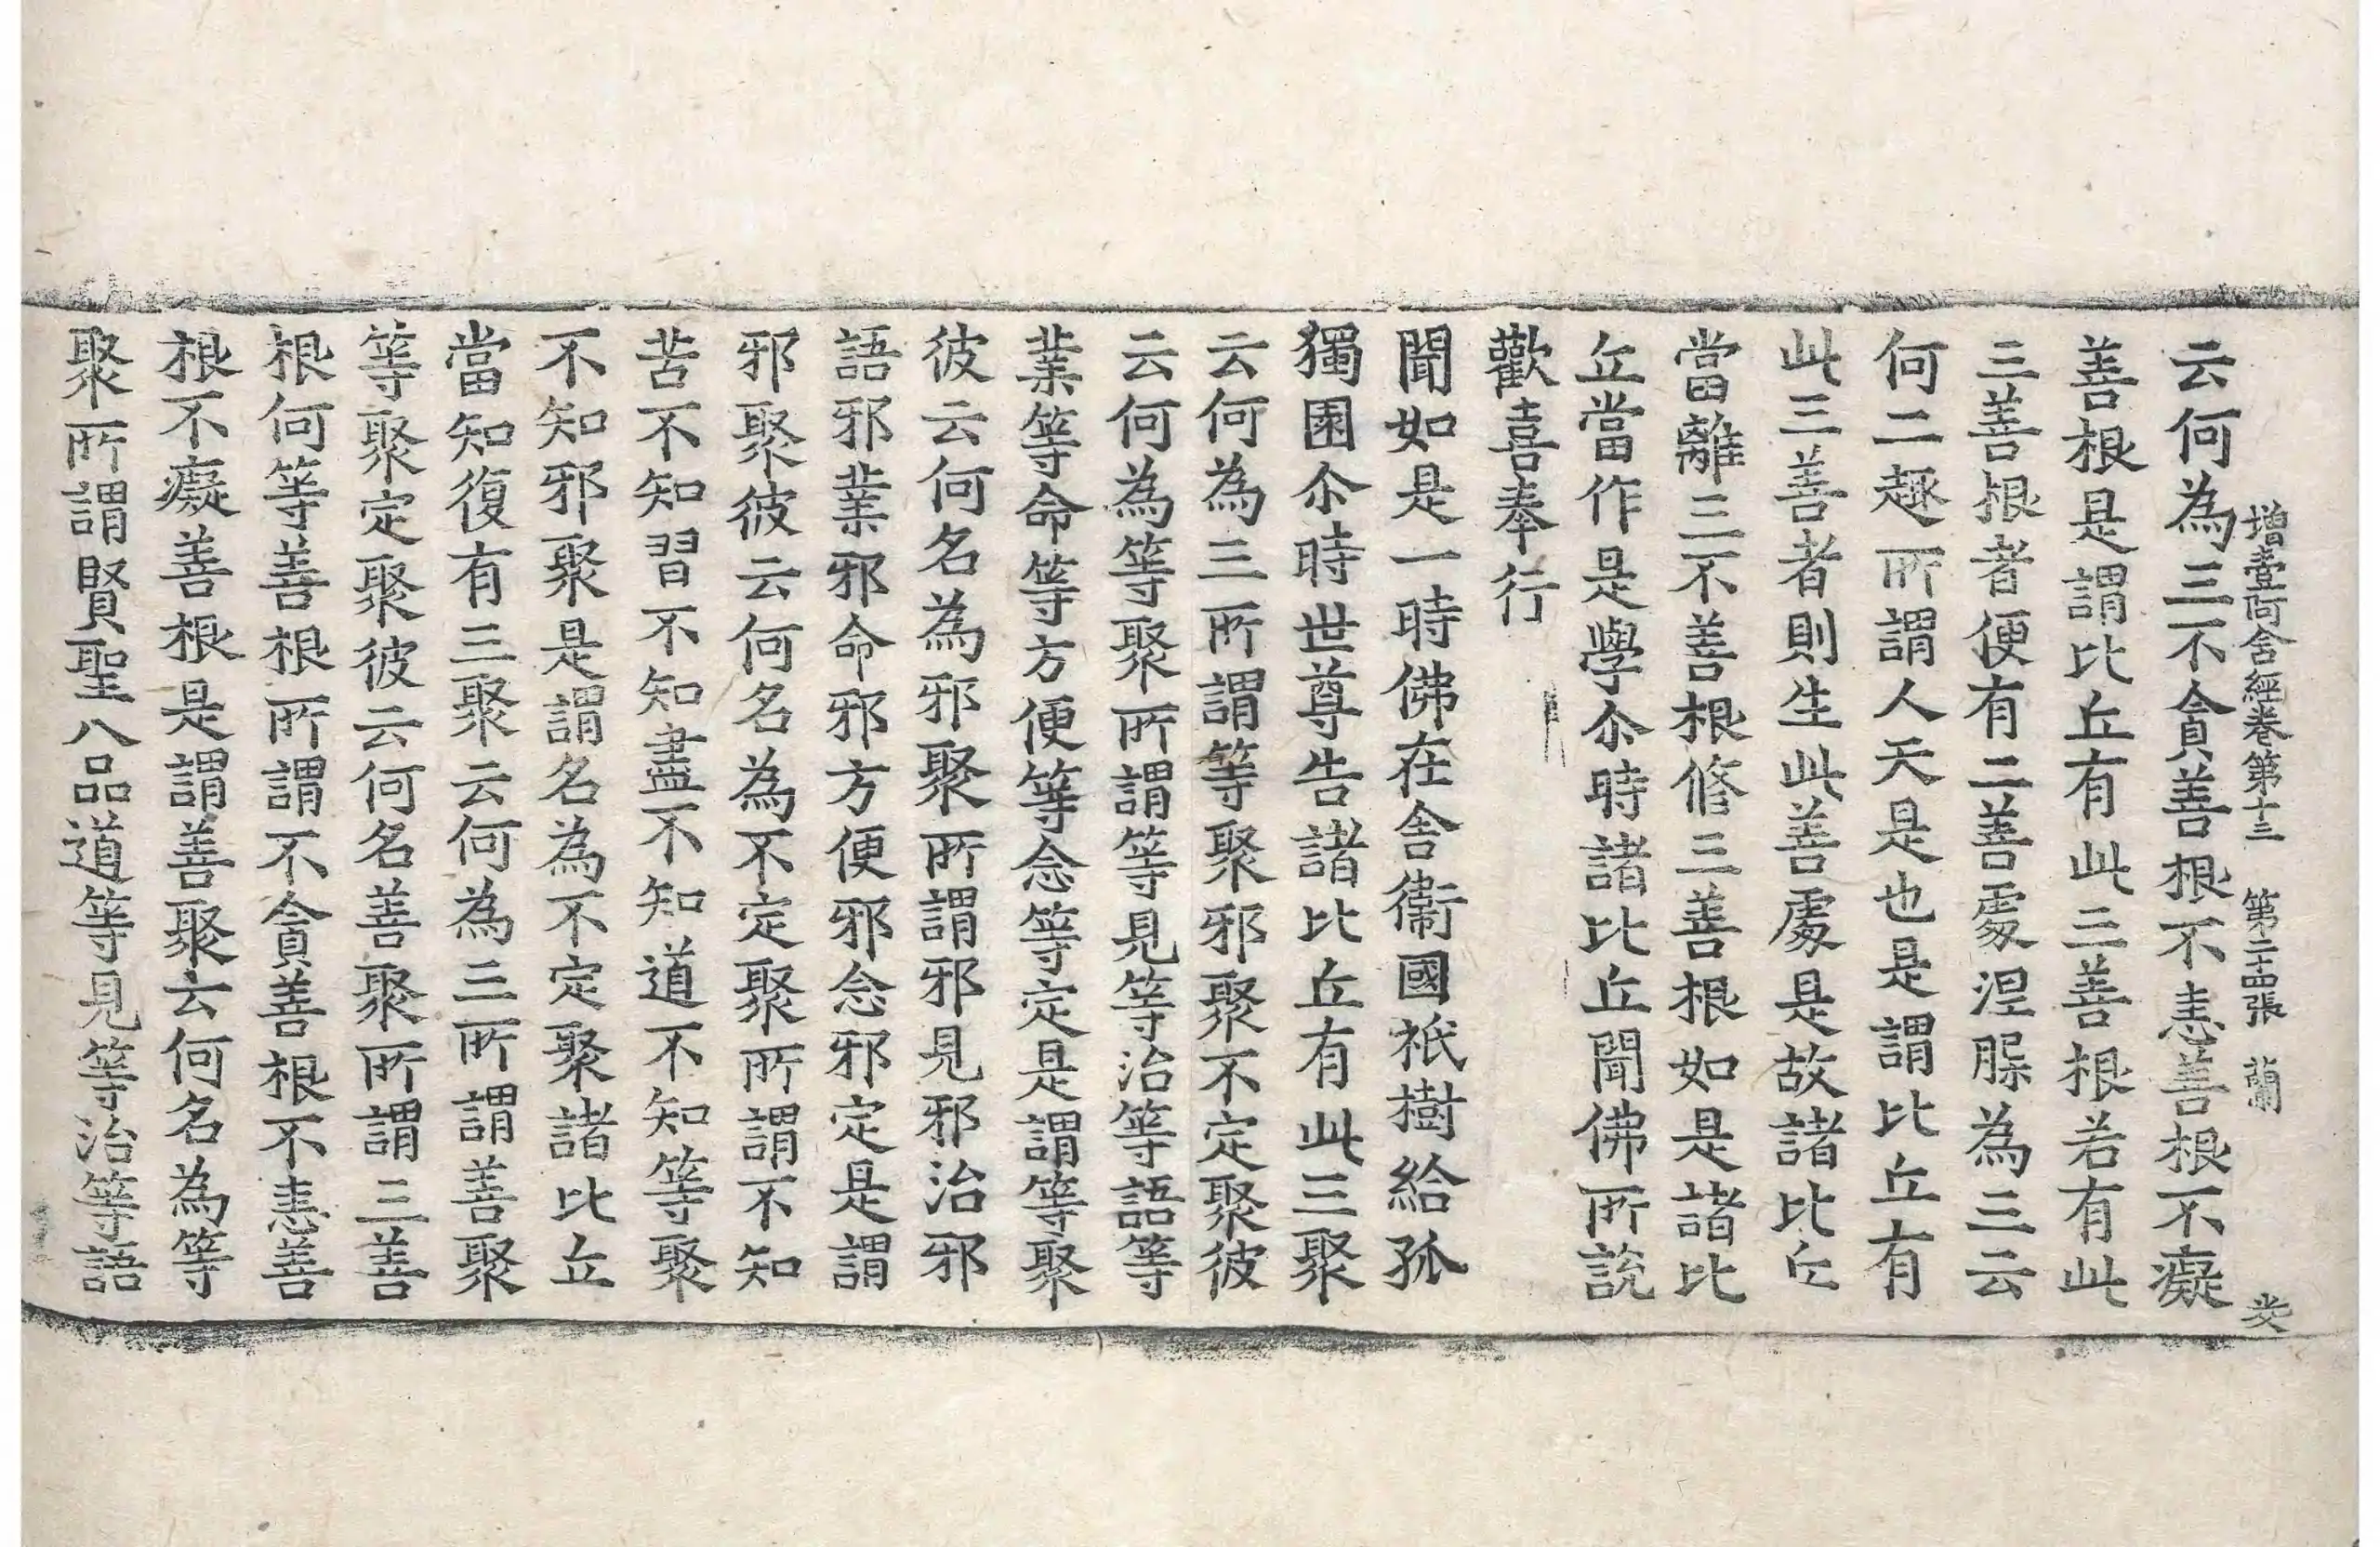 增壹阿含經卷第十三　第二十四張　蘭
云何為三不貪善根不恚善根不癡
善根是謂比丘有此三善根若有此
三善根者便有二善處涅槃為三云
何二趣所謂人天是也是謂比丘有
此三善者則生此善處是故諸比丘
當離三不善根修三善根如是諸比
丘當作是學尒時諸比丘聞佛所說
歡喜奉行
聞如是一時佛在舍衛國祇樹給孤
獨園尒時世尊告諸比丘有此三聚
云何為三所謂等聚邪聚不定聚彼
云何為等聚所謂等見等治等語等
業等命等方便等念等定是謂等聚
彼云何名為邪聚所謂邪見邪治邪
語邪業邪命邪方便邪念邪定是謂
邪聚彼云何名為不定聚所謂不知
苦不知習不知盡不知道不知等聚
不知邪聚是謂名為不定聚諸比丘
當知復有三聚云何為三所謂善聚
等聚定聚彼云何名善聚所謂三善
根何等善根所謂不貪善根不恚善
根不癡善根是謂善聚云何名為等
聚所謂賢聖八品道等見等治等語